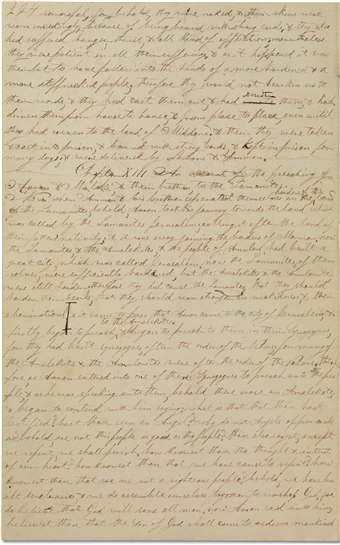 244 sorrowful for behold they were naked & their skins were
worn exceedingly because of being bound with strong cords & they also
had suffered hunger thirst & all kinds of afflictions nevertheless
they were patient in all their sufferings & as it happened it was
their lot to have fallen into the hands of a more hardened & a
more stiffnecked people therefore they would not hearken unto
their words & they had cast them out & had smote them & had
driven them from house to house & from place to place even until
they had arriven to the land of Middoni & there they were taken
& cast into prison & bound with strong cords & kept in prison for
many days & were delivered by Lamoni & Ammon
Chapter XIII An account of the preaching of
Aaron & Muloki & their brethren to the Lamanites
Now when Ammon & his brethren separated themselves in the borders of the land
of the Lamanites behold Aaron took his journey towards the land which
was called by the Lamanites Jerusalem calling it after the land of
their fathers nativity & it was away joining the borders of Mormon now
the Lamanites & the Amalekites & the people of Amulon had built a
great city which was called Jerusalem now the Lamanites of them
selves were sufficiently hardened but the Amalekites & the Amulonites
were still harder therefore they did cause the Lamanites that they should
harden their hearts that they should wax stronger in wickedness & their
abominations & it came to pass that Aaron came to the city of Jerusalem &
firstly began to preach to the Amalekites & he began to preach to them in their synagogues
for they had built synagogues after the order of the Nehors for many of
the Amalekites & the Amulonites were after the order of the Nehors there
fore as Aaron entered into one of their synagogues to preach unto the peo
ple & as he was speaking unto them behold there arose an Amalekite
& began to contend with him saying what is that that thou hast
testified hast thou seen an Angel why do not Angels appear unto
us behold are not this people as good as thy people thou also sayest except
we repent we shall perish how knowest thou the thought & intent
of our hearts how knowest thou that we have cause to repent how
knowest thou that we are not a righteous people behold we have bu
ilt sanctuaries & we do assemble ourselves together to worship God we
do believe that God will save all men now Aaron said unto him
believest thou that the Son of God shall come to redeem mankind